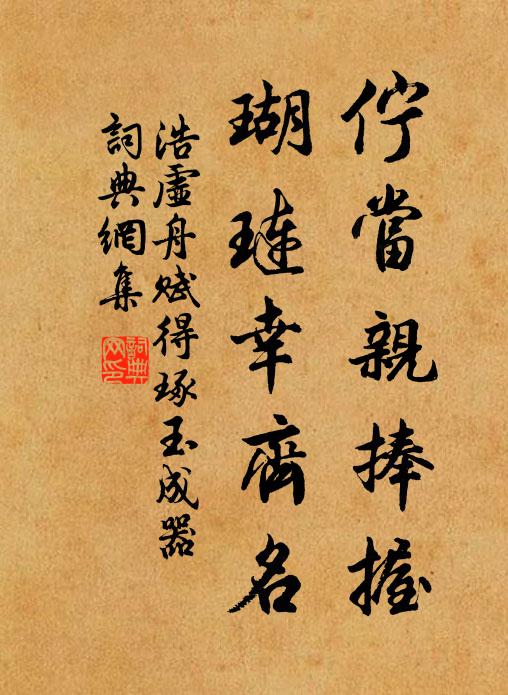 佇當親捧握
瑚璉幸齊名
浩虛舟賦得琢玉成器
詞典網集
詞典网印